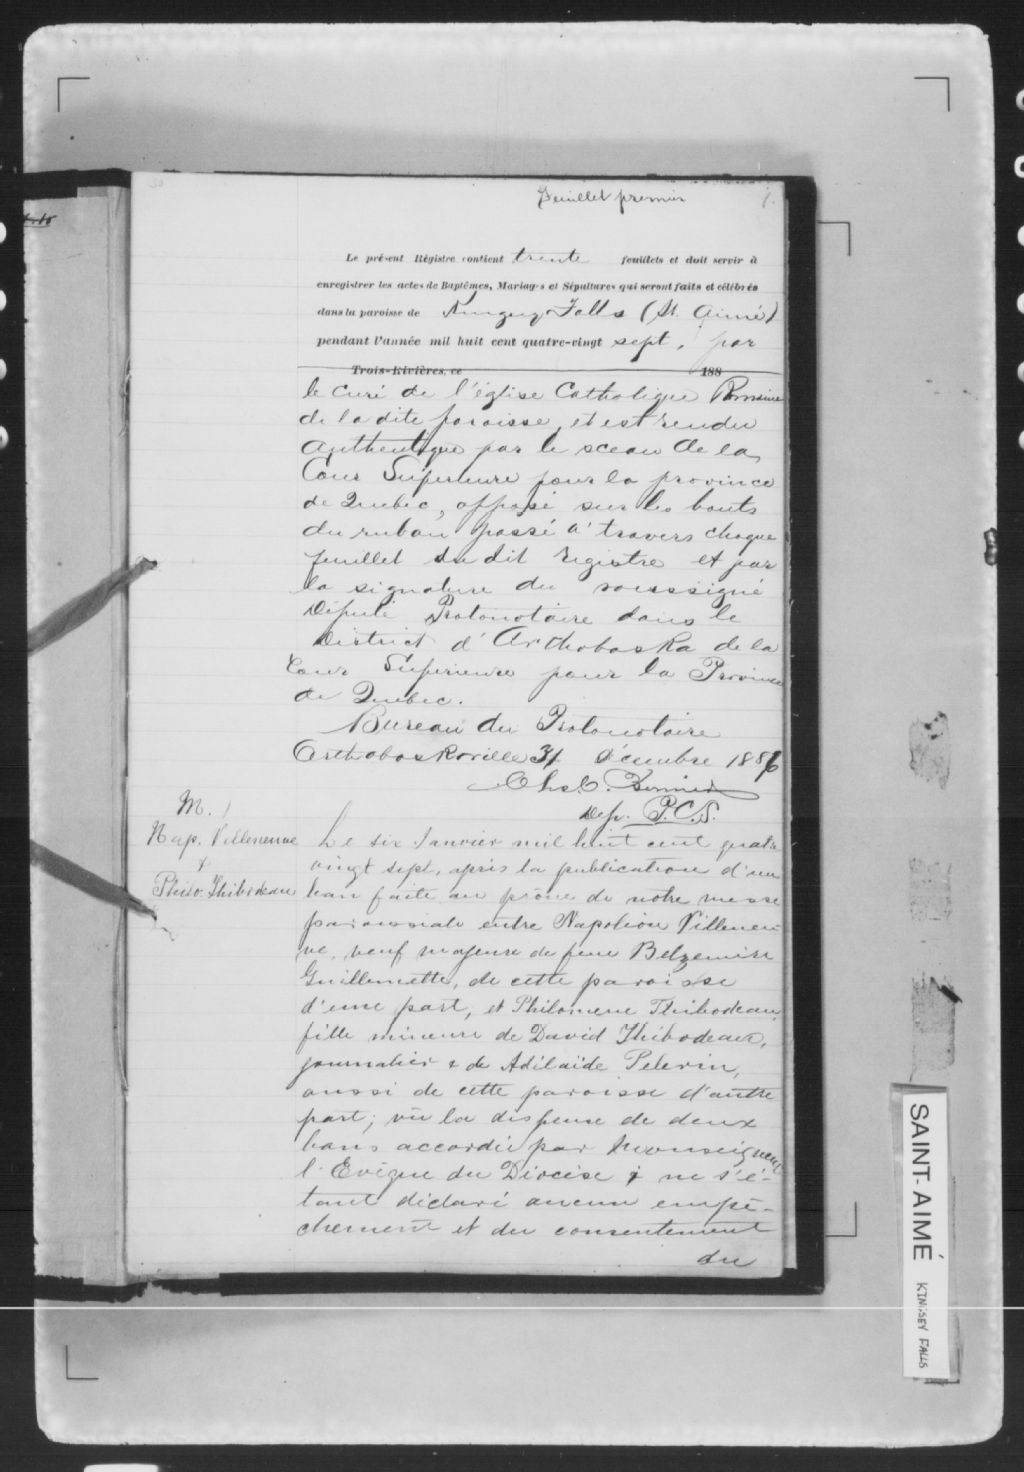 Feuillet premier 1.
Le présent Régistre contient trente feuillets et doit servir à
enregistrer les actes de Baptêmes, Mariages et Sépultures qui seront faits et célébrés
dans la paroisse de Kingsey Falls (St. Aimé)
pendant l'année mil huit cent quatre-vingt sept, par
Trois-Rivières, ce 188
le curé de l'église Catholique Romaine
de la dite paroisse, et est rendu
authentique par le sceau de la
Cour Supérieure pour la province
de Quebec, apposé sur les bouts
du ruban passé à travers chaque
feuillet du dit registre et par
la signature du soussigné
Député Protonotaire dans le
District d'Arthabaska de la
Cour Supérieure pour la Province
de Quebec.
Bureau du Protonotaire
Arthabaskaville 31 décembre 1886
Chs. C. Bernier
Dep. P.C.S.
M. 1
Nap. Villeneuve
&
Philo. Thibodeau
Le six Janvier mil huit cent quatre
vingt sept, après la publication d'un
ban faite au prône de notre messe
paroissiale entre Napoléon Villeneu-
ve, veuf majeur de feue Belzemire
Guillemette, de cette paroisse
d'une part, et Philomene Thibodeau,
fille mineure de David Thibodeau,
journalier & de Adélaïde Pelerin,
aussi de cette paroisse d'autre
part; vu la dispense de deux
bans accordée par Monseigneur
l'Evêque du Diocèse & ne s'é-
tant déclaré aucun empê-
chement et du consentement
du
SAINT-AIMÉ
KINGSEY FALLS